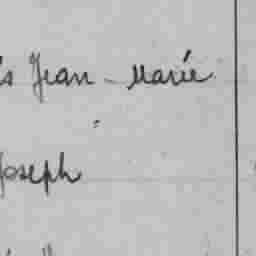 is Jean-Marie
"
Joseph